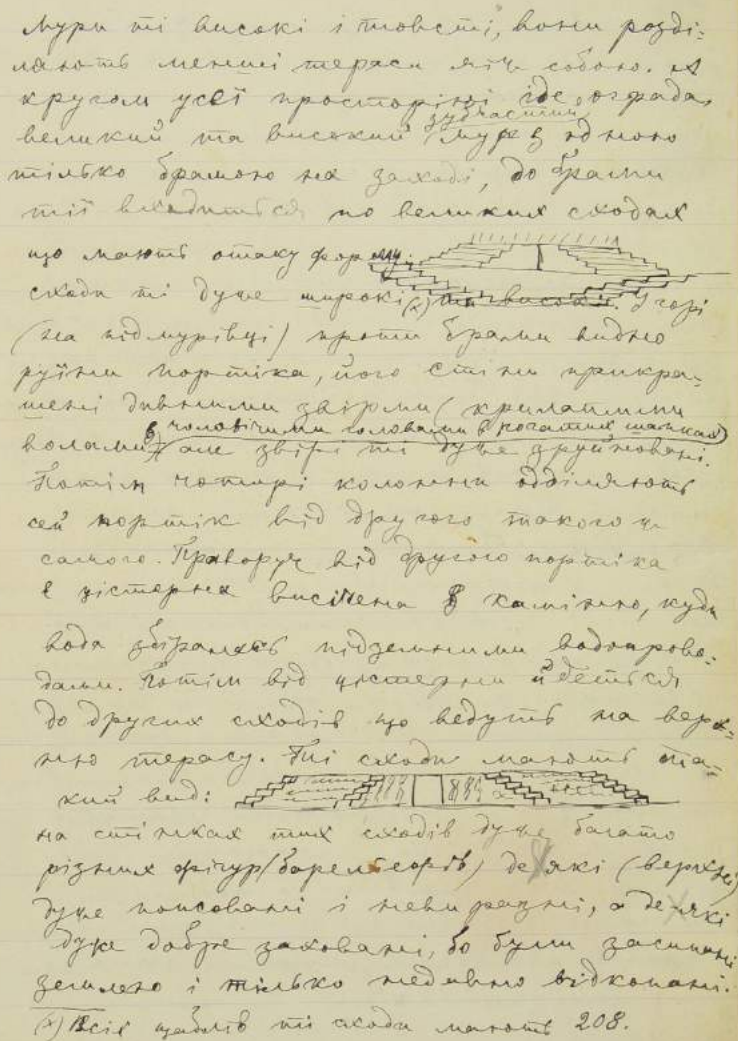 Мури ті високі і товсті, вони розді-
ляють менші тераси між собою. А
кругом усеї просторіні іде огради
зубчастий
великий та високий мур з одною
тілько брамою на заході, до брами
тії входиться по великих сходах
що мають отаку форму:
сходи ті дуже широкі (x) та високі. Угорі
(на підмурівці) проти брами видно
руїни портіка, його стіни прикра-
шені дивними звірми (крилатими
з чоловічими головами в рогатих шапках)
волами) але звірі ті дуже зруйновані.
Потім чотирі колонни одділяють
сей портік від другого такого ж
самого. Праворуч від другого портіка
є цістерна висічена в камінню, куди
вода збіралась підземними водопрово-
дами. Потім від цістерни йдеться
до других сходів що ведуть на верх-
ню терасу. Тиї сходи мають та-
кий вид:
на стінках тих сходів дуже багато
різних фігур (барельєфів) деякі (верхні)
дуже попсовані і невиразні, а деякі
дуже добре заховані, бо були засипані
землею і тілько недавно відкопані.
(x) Всіх щаблів ті сходи мають 208.